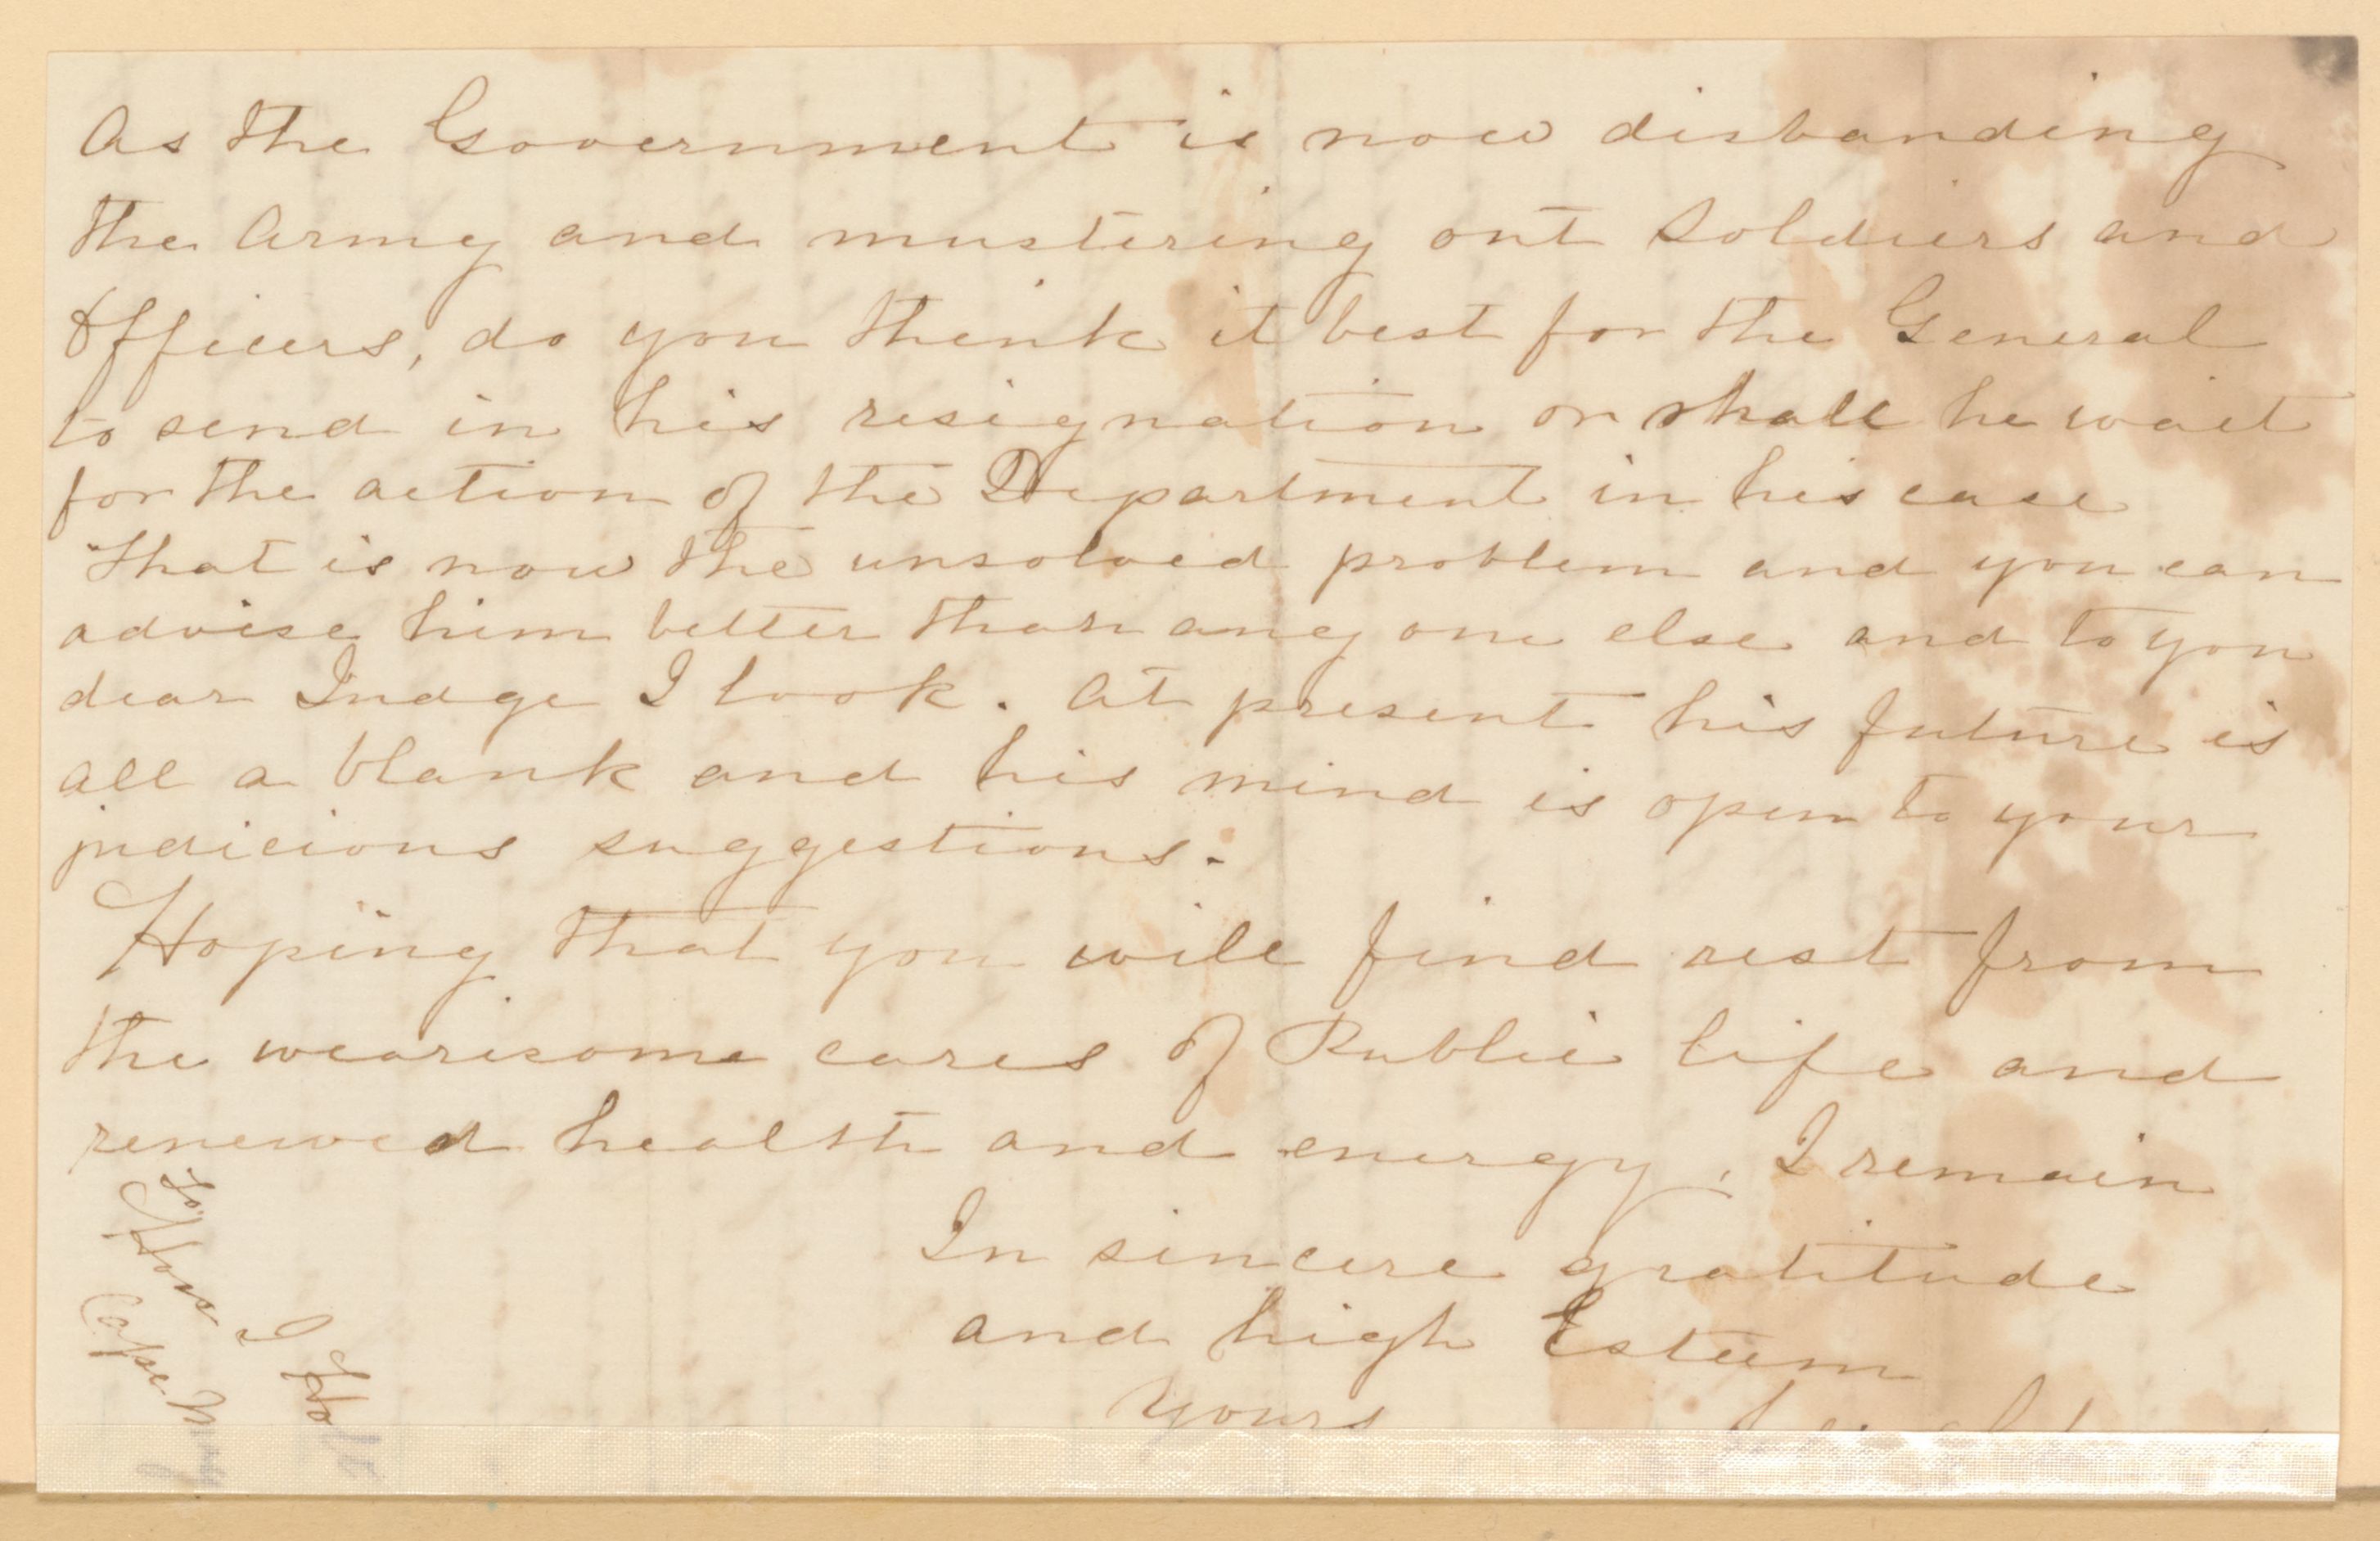 As the Government is now disbanding
the Army and mustering out Soldiers and
Officers, do you think it best for the General
to send in his resignation or shall he wait
for the action of the Department in his case
That is now the unsolved problem and you can
advise him better than any one else and to you
dear Judge I look. At present his future is
all a blank and his mind is open to your
judicious suggestions.
Hoping that you will find rest from
the wearisome cares of Public life and
renewed health and energy, I remain
In sincere gratitude
and high Esteem
Yours
To
Hon J Holt
Cape May